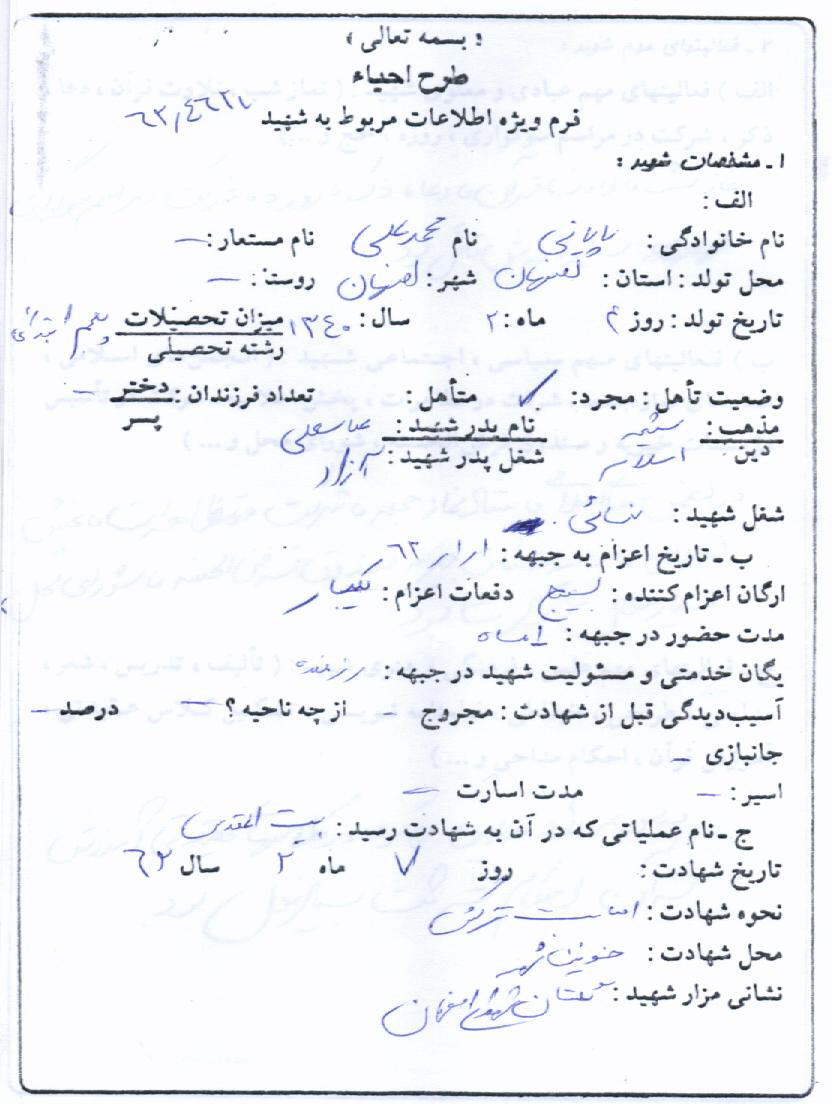 « بسمه تعالی »
طرح احیاء
فرم ویژه اطلاعات مربوط به شهید
۱ـ مشخصات شهید :
الف :
نام خانوادگی : نام محمدعلی نام مستعار : —
محل تولد : استان : اصفهان شهر : اصفهان روستا : —
تاریخ تولد : روز ۴ ماه : ۲ سال : ۱۳۴۰ میزان تحصیلات
رشته تحصیلی
وضعیت تأهل : مجرد : ✓ متأهل : تعداد فرزندان : دختر —
پسر
مذهب : شیعه نام پدر شهید : عباسعلی
دین : اسلام شغل پدر شهید : آزاد
شغل شهید :
ب ـ تاریخ اعزام به جبهه :
ارگان اعزام کننده : بسیج دفعات اعزام : یکبار
مدت حضور در جبهه :
یگان خدمتی و مسئولیت شهید در جبهه : رزمنده
آسیب‌دیدگی قبل از شهادت : مجروح - از چه ناحیه ؟ — درصد —
جانبازی —
اسیر : — مدت اسارت —
ج ـ نام عملیاتی که در آن به شهادت رسید : بیت المقدس
تاریخ شهادت : روز ۷ ماه ۲ سال ۶۲
نحوه شهادت : اصابت ترکش
محل شهادت : خونین شهر
نشانی مزار شهید : گلستان شهدای اصفهان